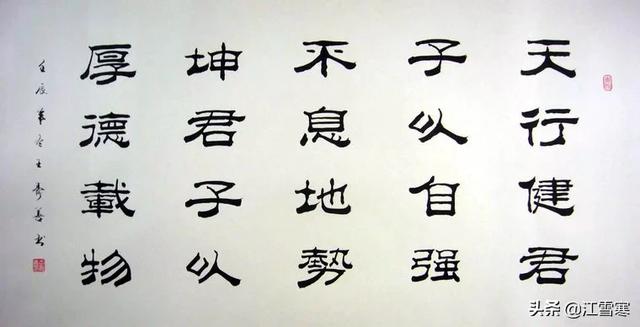 天行健君
子以自强
不息地勢
坤君子以
厚德載物
壬辰冬王秀善书
头条 @江雪寒